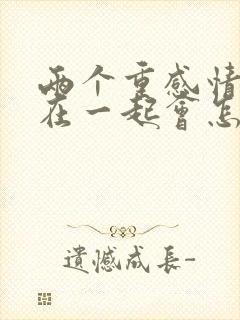 两个重感情
在一起会怎
遗憾成长-